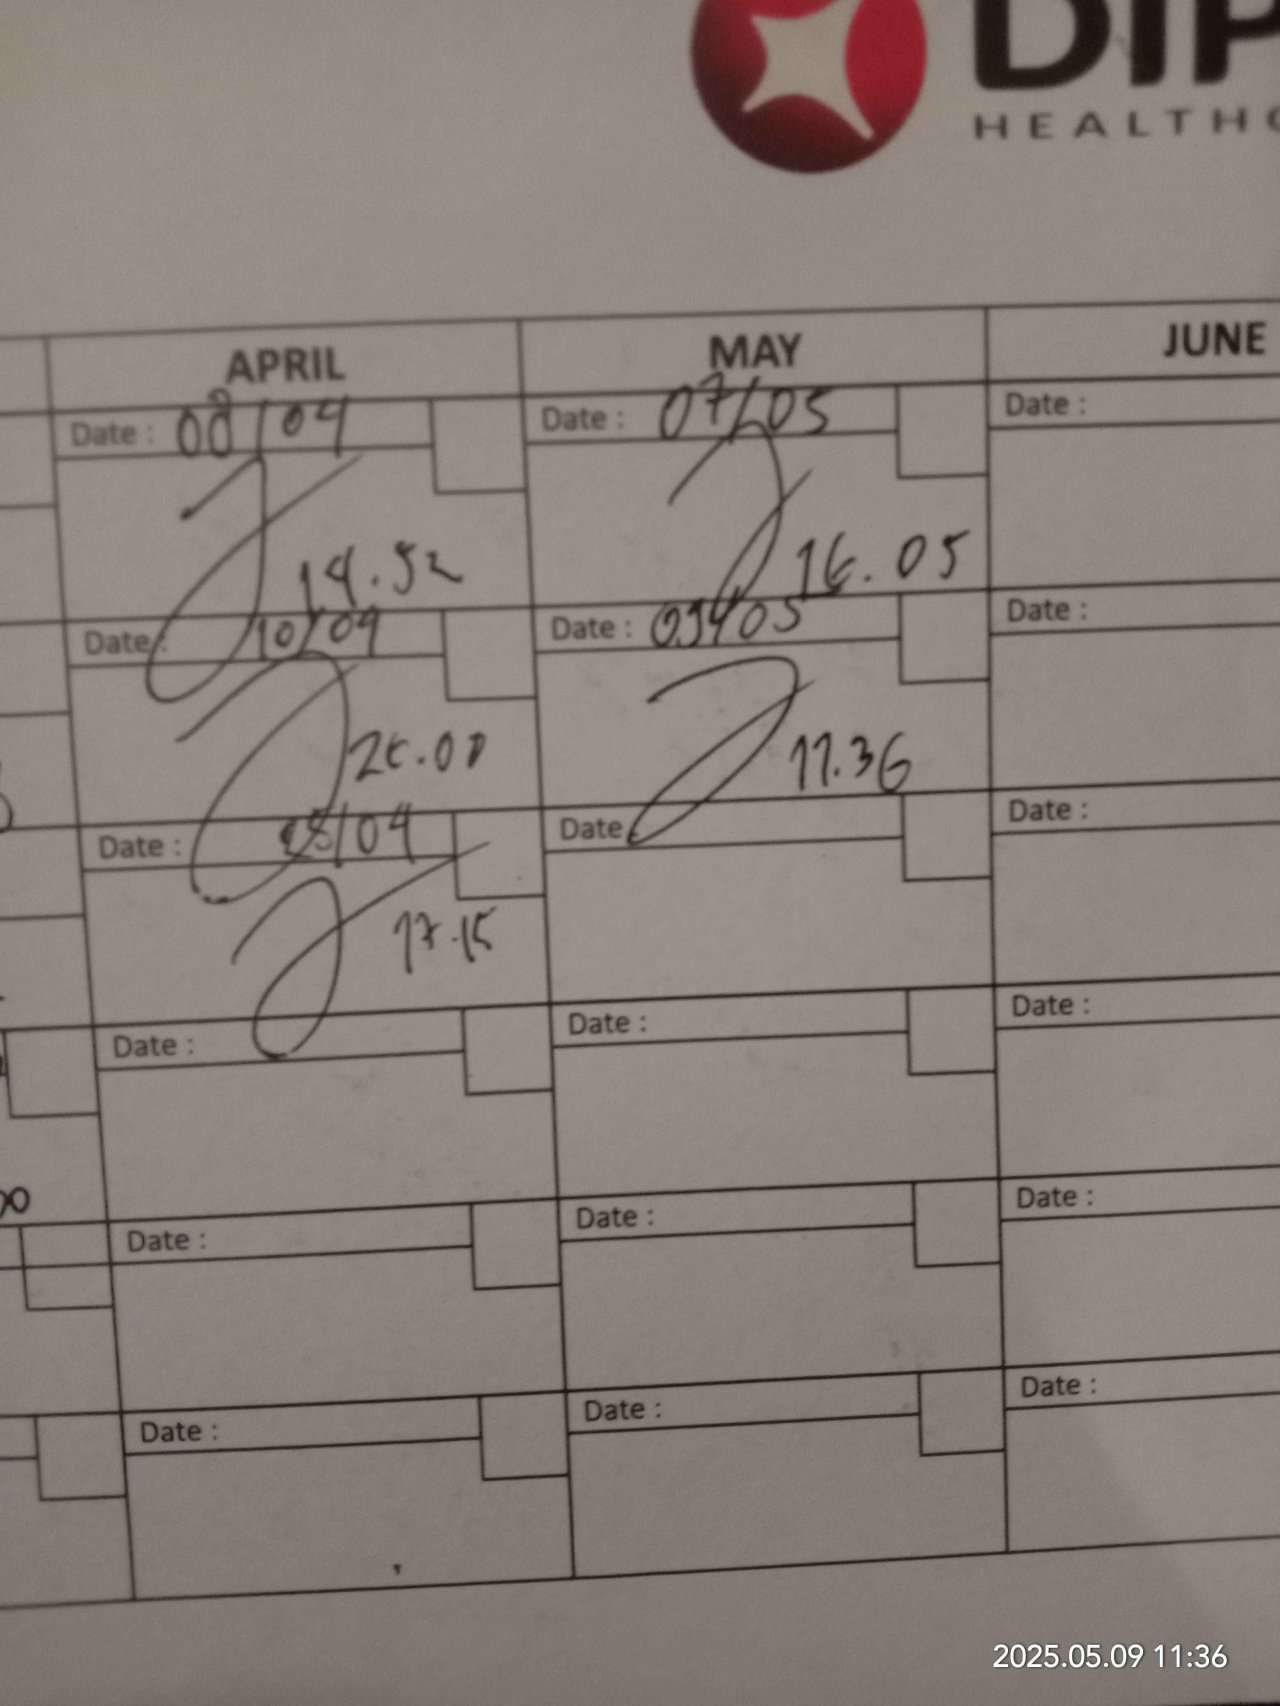 DIP
HEALTHC
APRIL MAY JUNE
Date : 08/04 Date : 07/05 Date :
14.52 16.05
Date : 10/04 Date : 09/05 Date :
11.36
Date : /04 Date Date :
17.15
Date : Date : Date :
Date : Date : Date :
Date : Date : Date :
2025.05.09 11:36